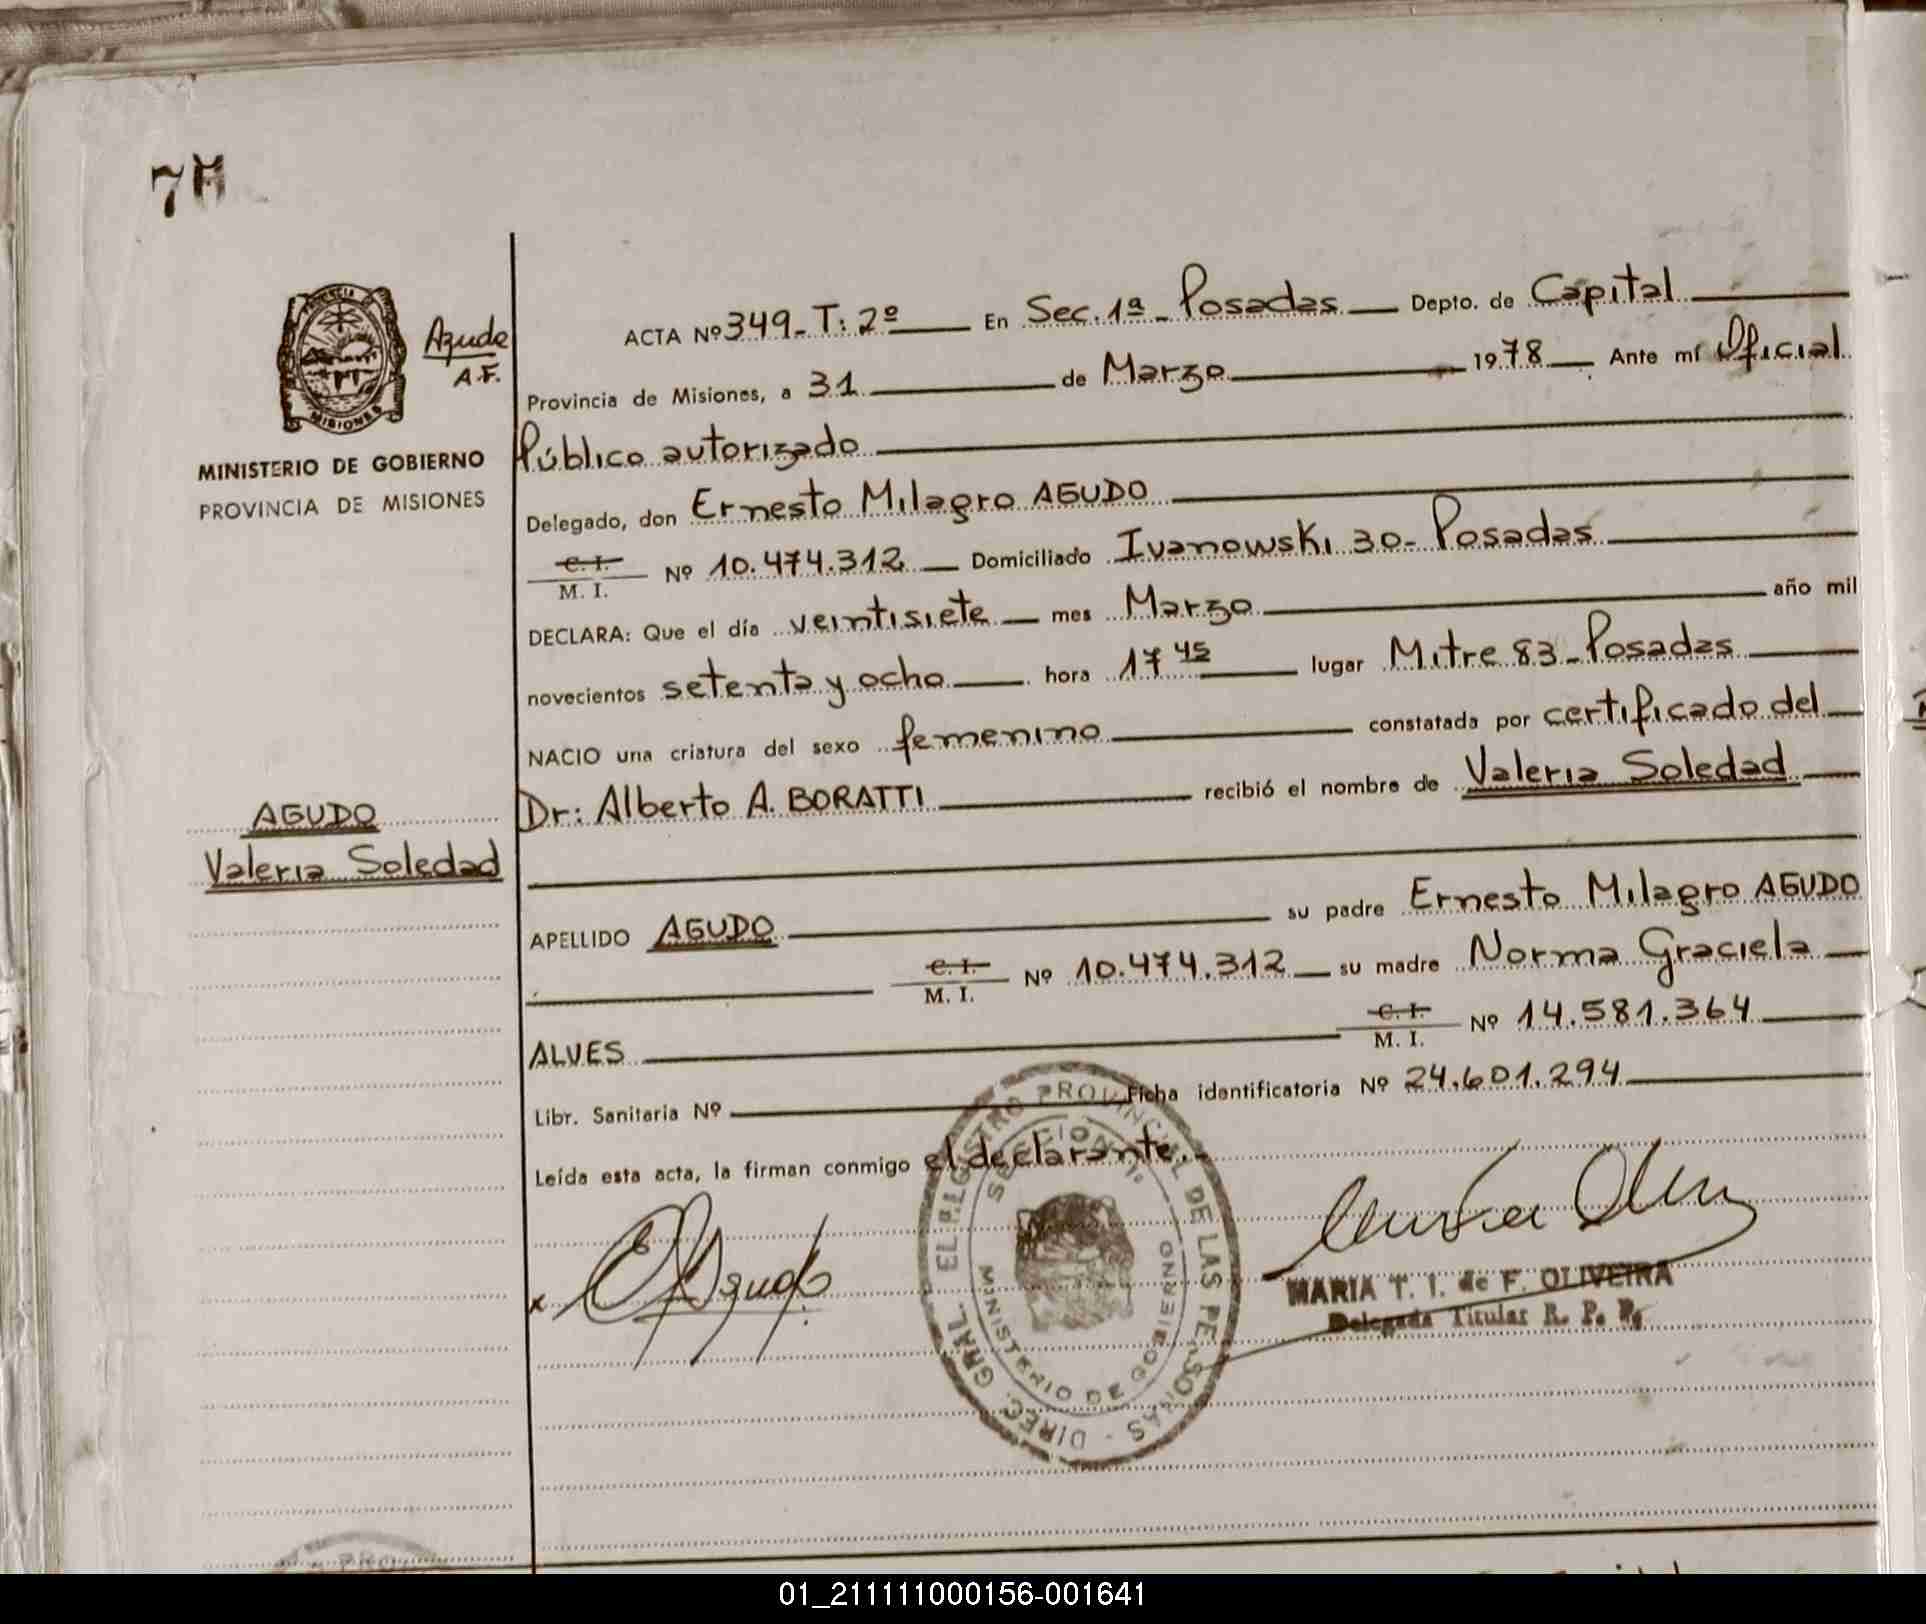 7
PROVINCIA DE
MISIONES
Agudo
A.F.
MINISTERIO DE GOBIERNO
PROVINCIA DE MISIONES
AGUDO
Valeria Soledad
ACTA Nº 349-T: 2º En Sec. 1ª - Posadas Depto. de Capital
Provincia de Misiones, a 31 de Marzo 1978 Ante mí Oficial
Público autorizado
Delegado, don Ernesto Milagro AGUDO
C. I.
M. I. Nº 10.474.312 Domiciliado Ivanowski 30- Posadas
DECLARA: Que el día veintisiete mes Marzo año mil
novecientos setenta y ocho hora 17 45 lugar Mitre 83- Posadas
NACIO una criatura del sexo femenino constatada por certificado del
Dr: Alberto A. BORATTI recibió el nombre de Valeria Soledad
APELLIDO AGUDO su padre Ernesto Milagro AGUDO
C. I.
M. I. Nº 10.474.312 su madre Norma Graciela
ALVES C. I.
M. I. Nº 14.581.364
Libr. Sanitaria Nº Ficha identificatoria Nº 24.601.294
Leída esta acta, la firman conmigo el declarante.-
x E Agudo
DIREC. GRAL. EL REGISTRO PROVINCIAL DE LAS PERSONAS
SECCION 1º
MINISTERIO DE GOBIERNO
MARIA T. I. de F. OLIVEIRA
Delegada Titular R. P. P.
PRO
01_211111000156-001641